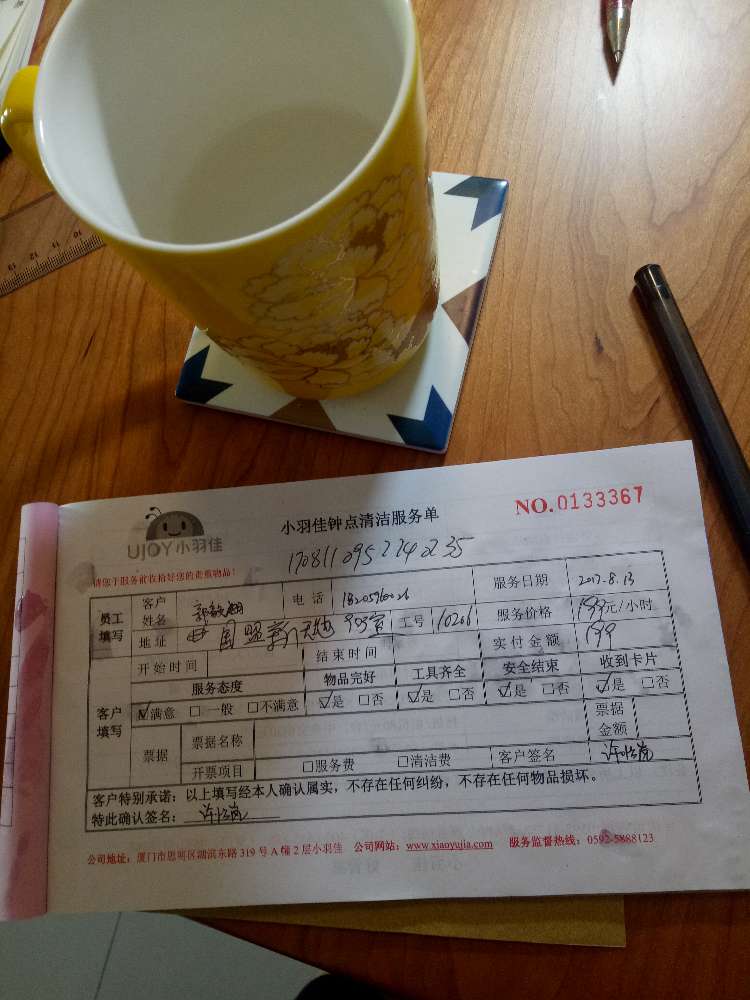 13 12 11 10
UJOY小羽佳
小羽佳钟点清洁服务单
NO.0133367
1708110952240235
请您于服务前收拾好您的贵重物品！
员工填写 客户姓名 电话 服务日期 2017.8.13
地址 国盟新天地 903室 工号 10266 服务价格 199元/小时
开始时间 结束时间 实付金额 199
服务态度 物品完好 工具齐全 安全结束 收到卡片
客户填写 ☑满意 □一般 □不满意 ☑是 □否 ☑是 □否 ☑是 □否 ☑是 □否
票据 票据名称 票据金额
开票项目 □服务费 □清洁费 客户签名
客户特别承诺：以上填写经本人确认属实，不存在任何纠纷，不存在任何物品损坏。
特此确认签名：
公司地址：厦门市思明区湖滨东路 319 号 A 幢 2 层小羽佳 公司网站：www.xiaoyujia.com 服务监督热线：0592-5888123